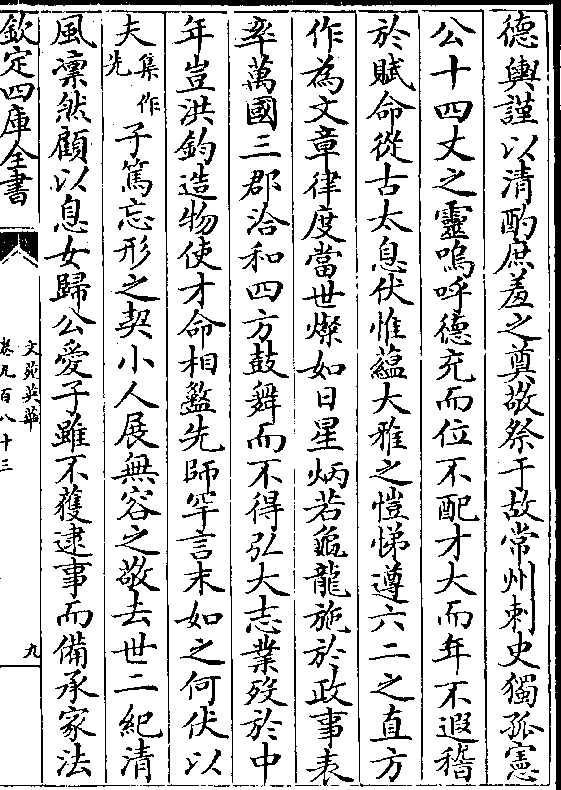 德輿謹以清酌庶羞之奠敬祭于故常州刺史獨孤憲
公十四丈之靈嗚呼德充而位不配才大而年不遐稽
於賦命從古太息伏惟蘊大雅之愷悌遵六二之直方
作為文章律度當世燦如日星炳若龜龍施於政事表
率萬國三郡洽和四方鼓舞而不得弘大志業歿於中
年豈洪鈞造物使才命相盭先師罕言末如之何伏以
夫集作先子篤忘形之契小人展無容之敬去世二紀清
風凜然顧以息女歸公愛子雖不獲逮事而備承家法
欽定四庫全書
文苑英華
卷九百八十三
九